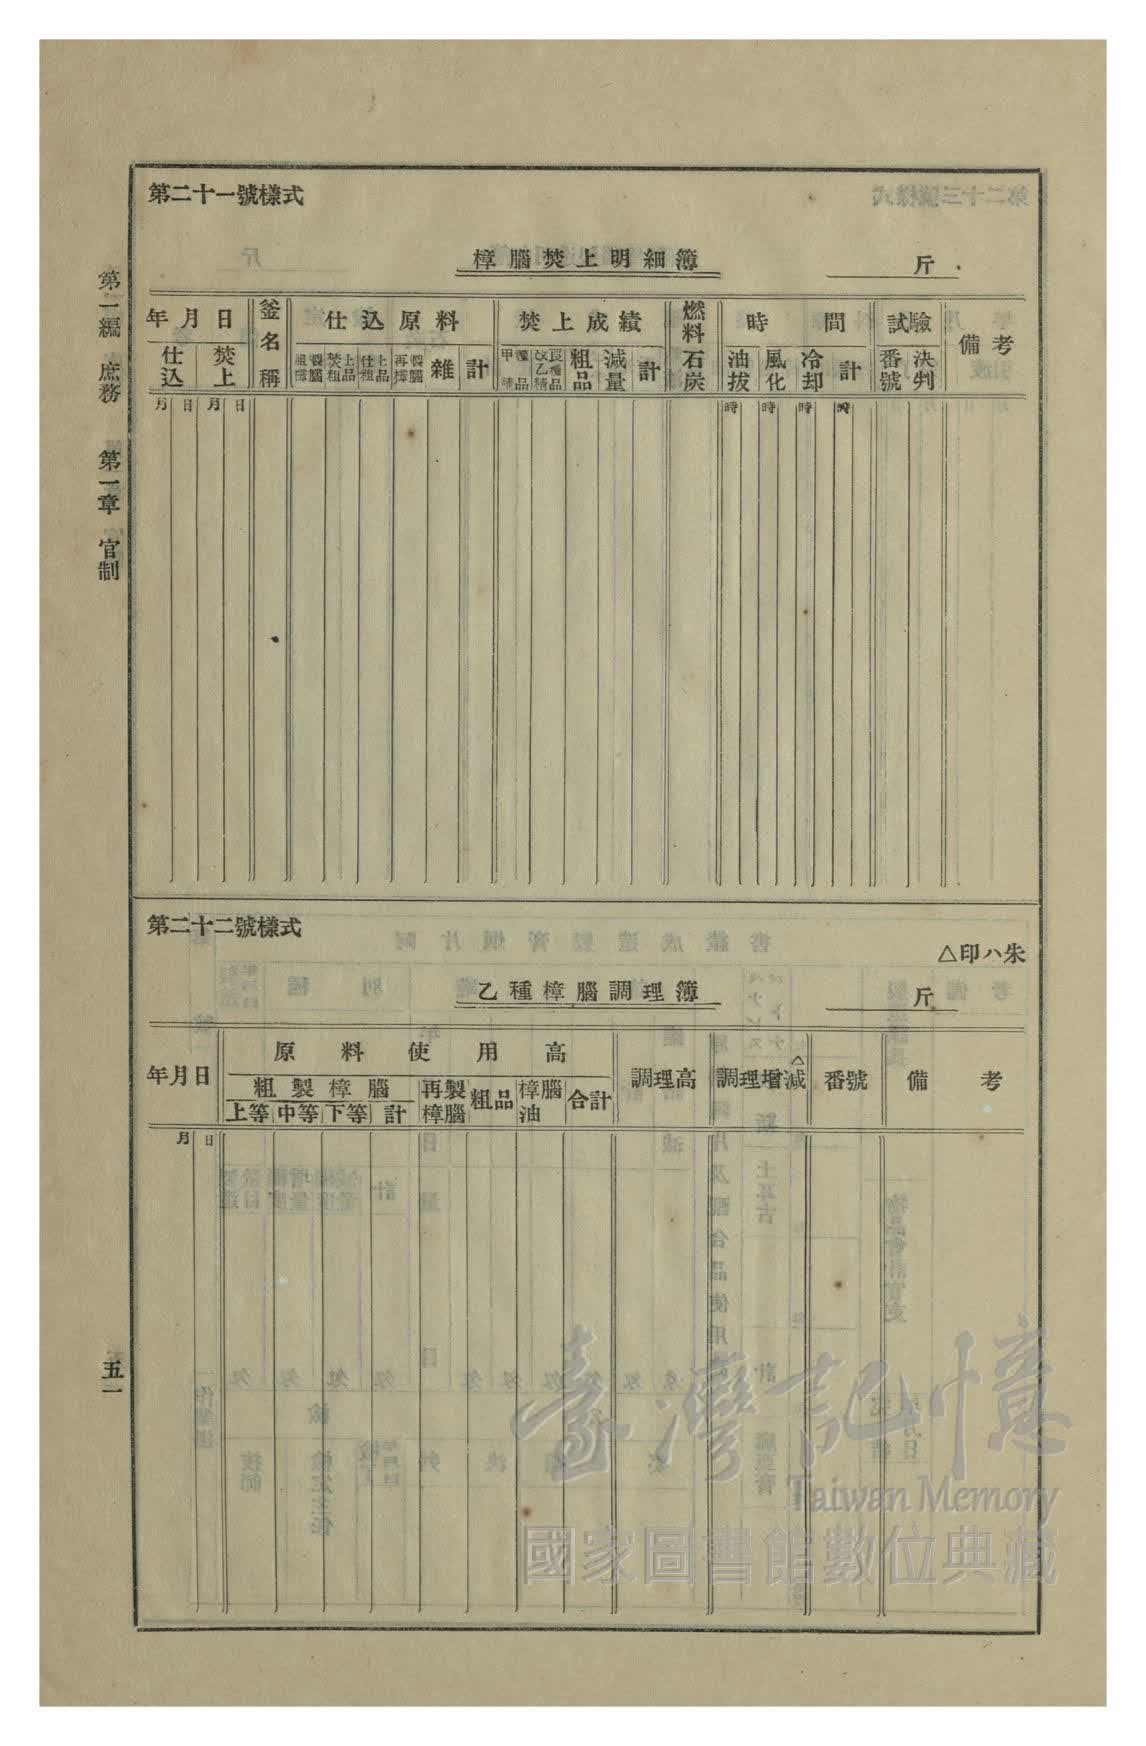 第二十一號樣式
樟腦焚上明細簿
斤
年月日 釜名稱 仕込原料 焚上成績 燃料 時間 試驗 備考
仕込 焚上 粗製樟腦 焚上粗品 仕上粗品 再製樟腦 雜 計 改良乙種精品 粗品 減量 計 石炭 油拔 風化 冷却 計 番號 決判
月 日 月 日 時 時 時 時
第二十二號樣式
△印ハ朱
乙種樟腦調理簿
斤
年月日 原料使用高 調理高 調理增減△ 番號 備考
粗製樟腦 再製樟腦 粗品 樟腦油 合計
上等 中等 下等 計
月 日
第一編 庶務 第一章 官制
五一
臺灣記憶
Taiwan Memory
國家圖書館數位典藏